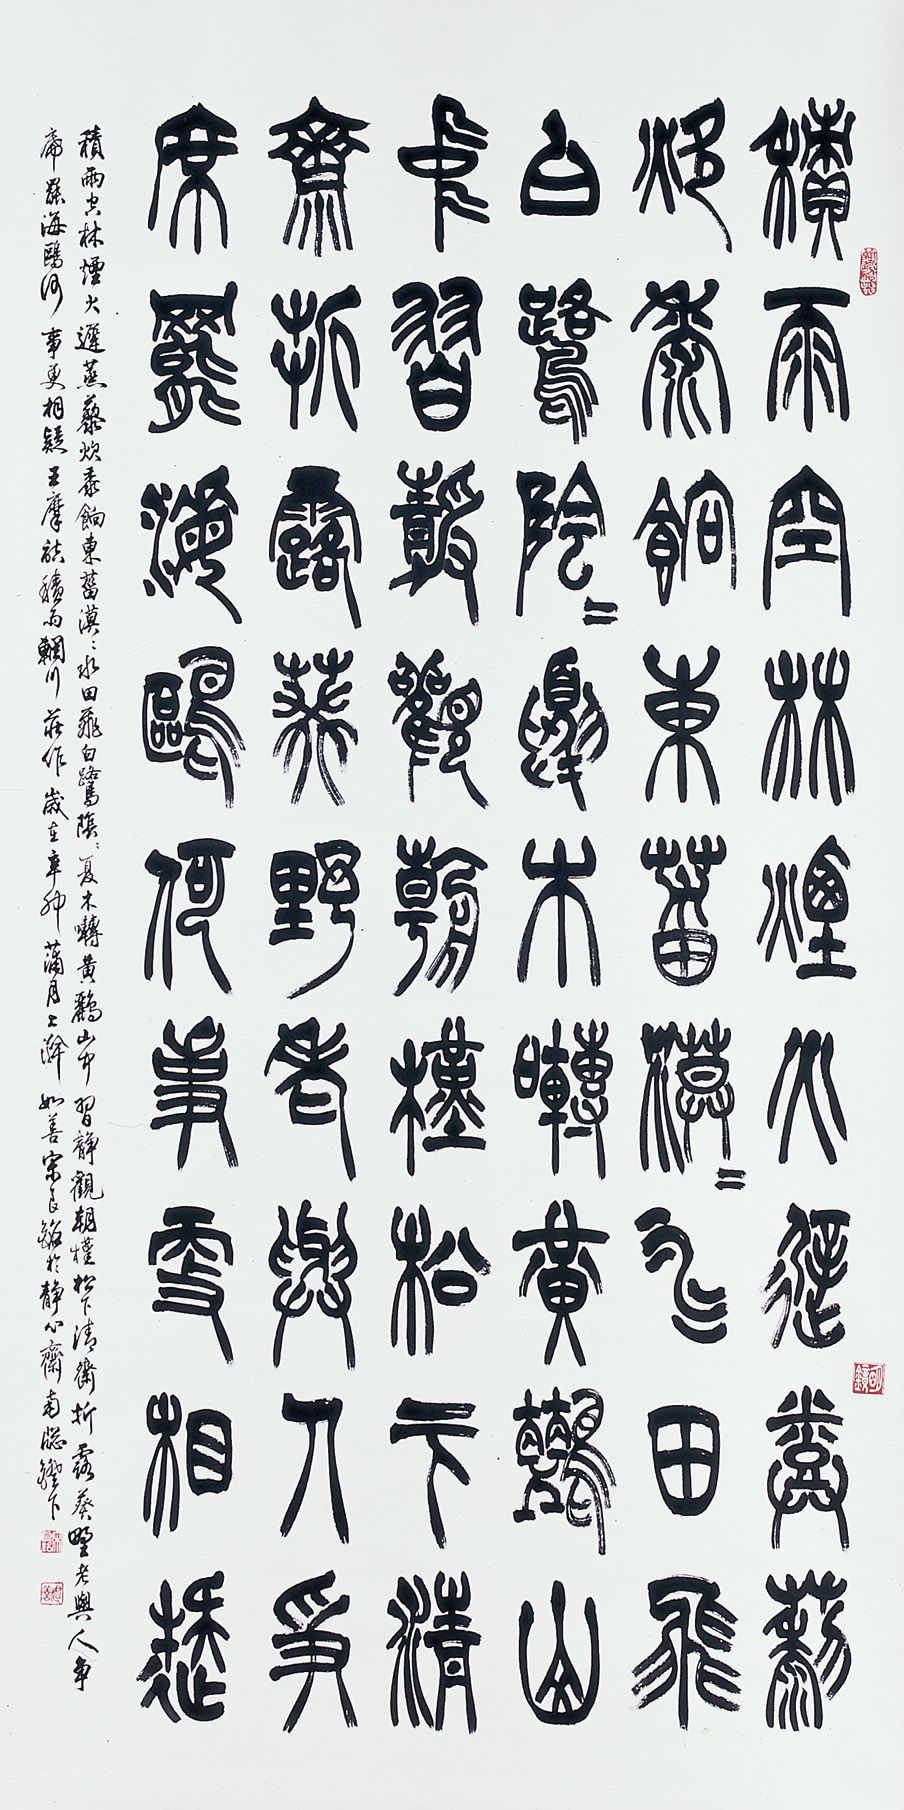 積雨空林煙火遲蒸藜
炊黍餉東菑漠〻水田飛
白鷺陰〻夏木囀黄鸝山
中習靜觀朝槿松下清
齋折露葵野老與人爭
席罷海鷗何事更相疑
積雨空林煙火遲蒸藜炊黍餉東菑漠〻水田飛白鷺陰〻夏木囀黄鸝山中習靜觀朝槿松下清齋折露葵野老與人爭
席罷海鷗何事更相疑王摩詰積雨輞川莊作歲在辛卯蒲月上澣如善宗良銘於靜心齋南窓鐙下